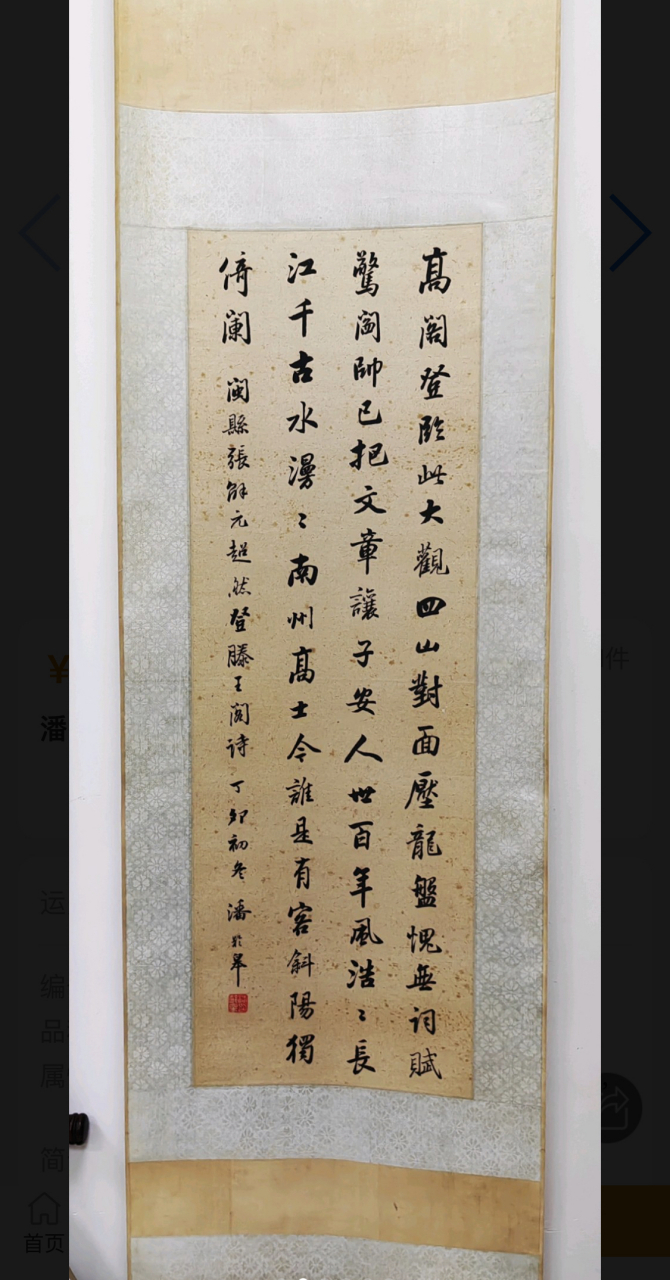 高閣登臨此大觀四山對面壓龍盤愧無詞賦
驚閫帥已把文章讓子安人世百年風浩〻長
江千古水漫〻南州高士今誰是有客斜陽獨
倚闌
閩縣張解元超然登滕王閣诗
丁卯初冬潘齡皋
¥
件
潘
运
编
品
属
简
首页